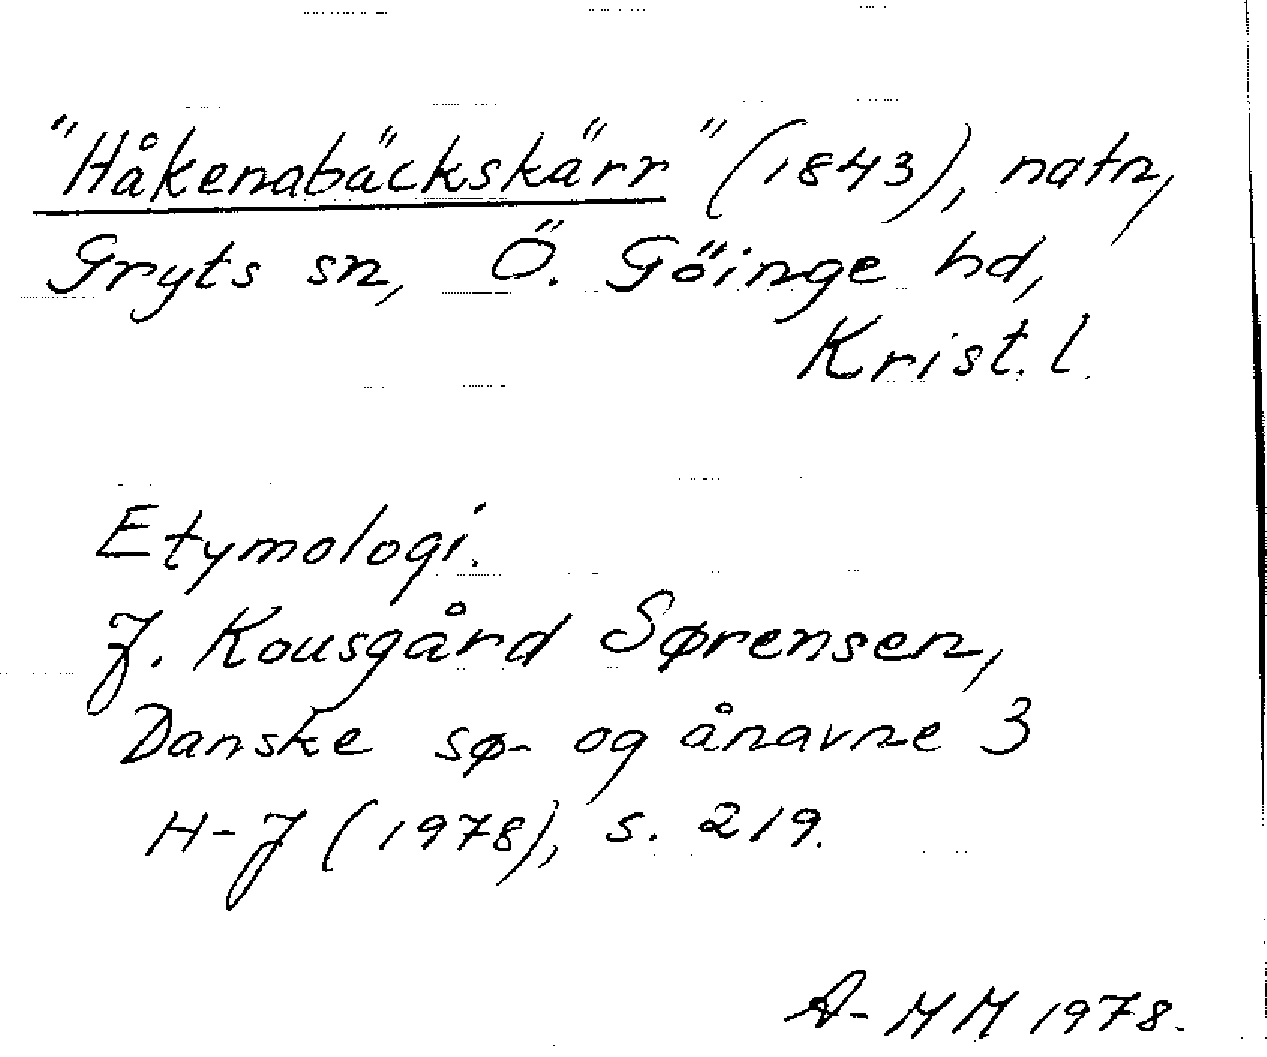 "Håkenabäckskärr" (1843), natn,
Gryts sn, Ö. Göinge hd,
Krist. l.
Etymologi.
J. Kousgård Sørensen,
Danske sø- og ånavne 3
H-J (1978), s. 219.
A-MM 1978.